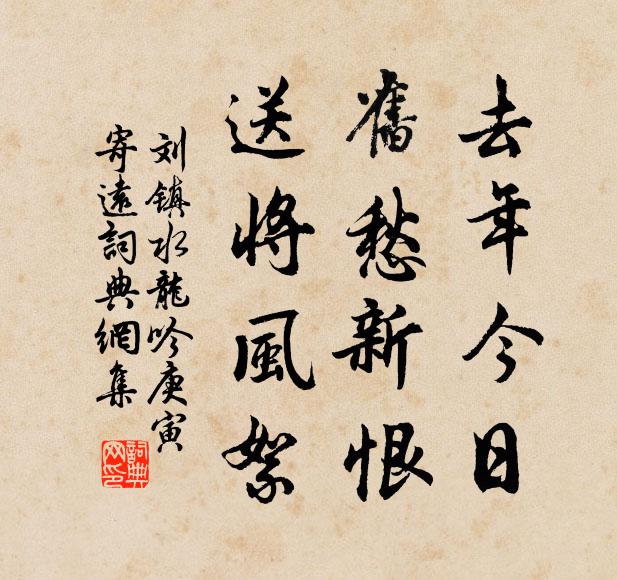 去年今日
舊愁新恨
送將風絮
刘镇水龍吟庚寅
寄遠詞典網集
詞典
网印